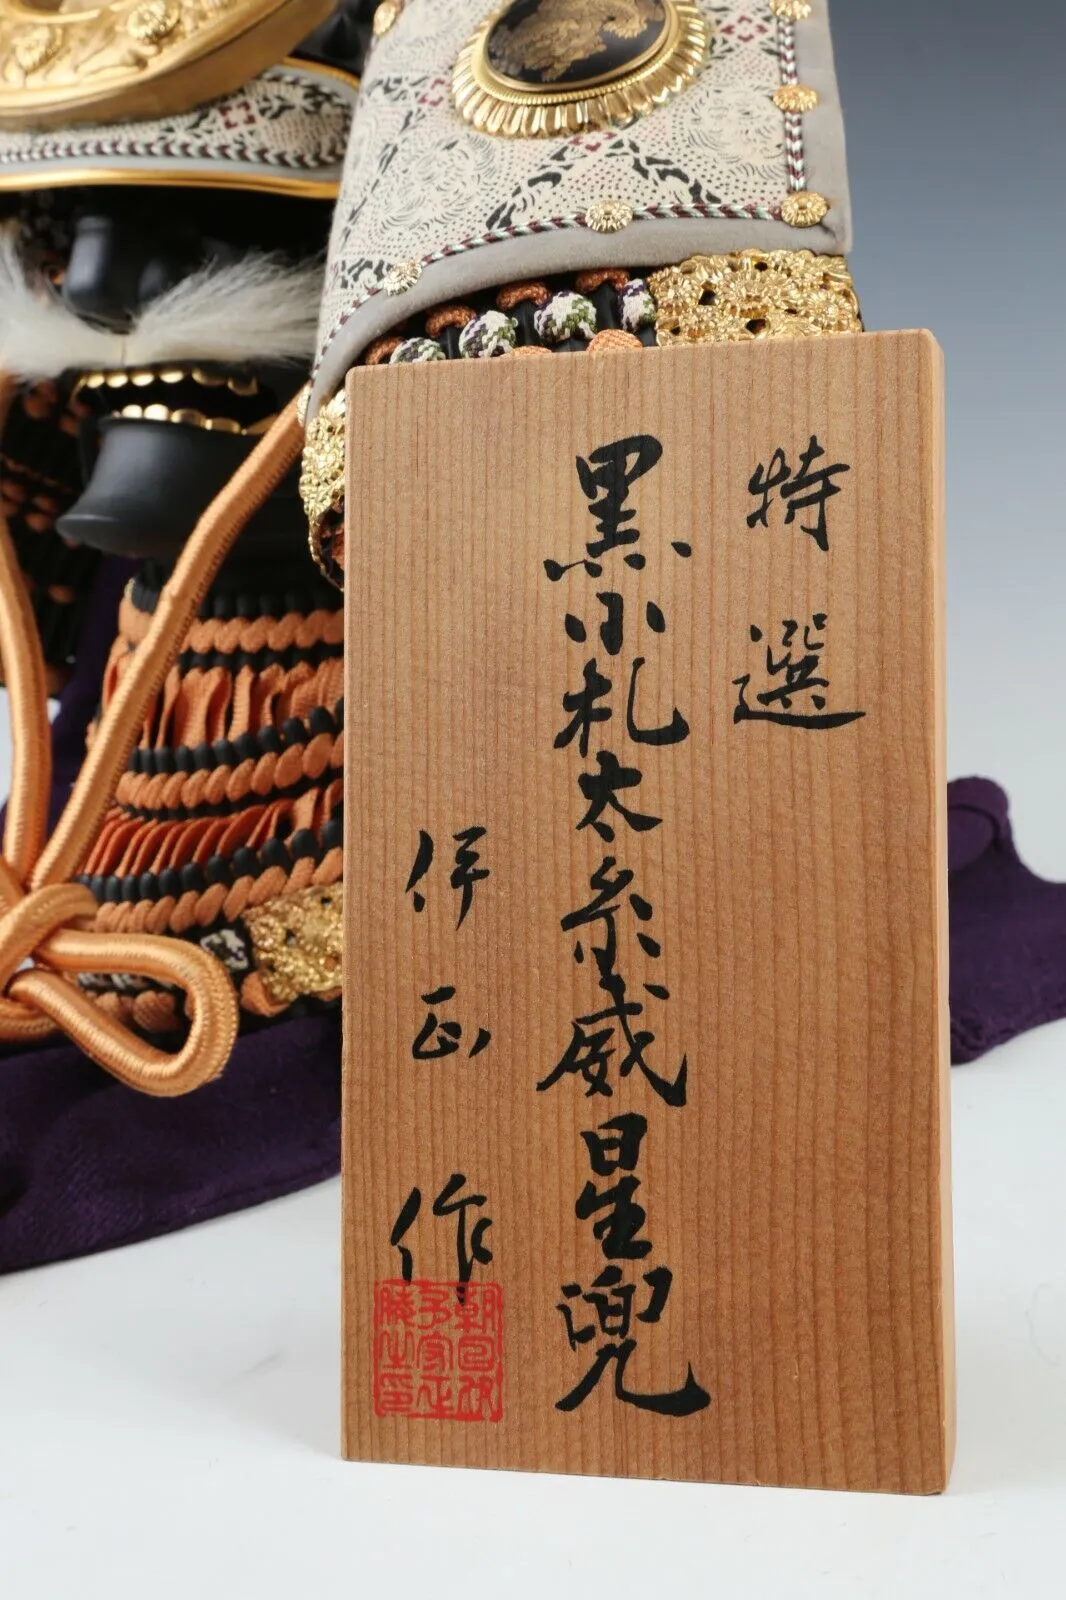 特選
黒小札太糸威星兜
伊正作